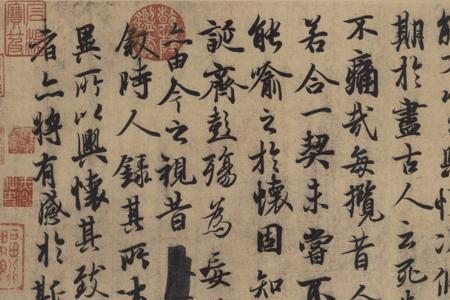 能不以之興懷
期於盡古人云死
不痛哉每攬昔人
若合一契未嘗不
能喻之於懷固知
誕齊彭殤為妄
亦由今之視昔
敘時人錄其所
異所以興懷其致
者亦將有感於斯